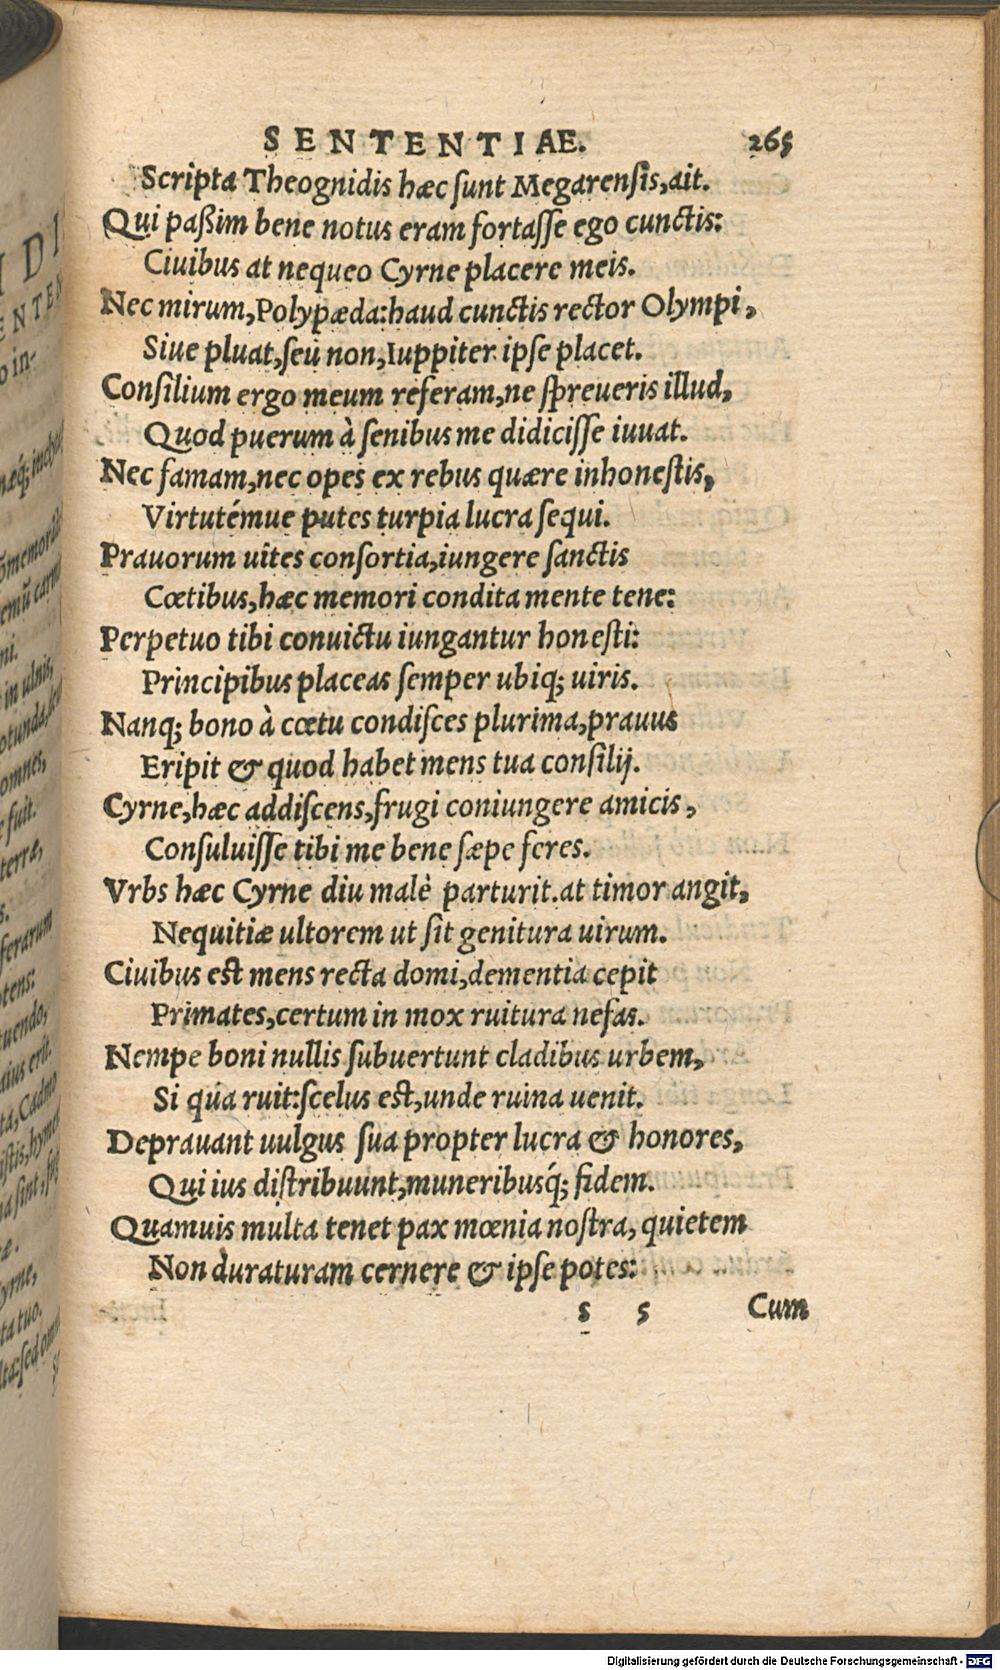 SENTENTIAE. 265
Scripta Theognidis hæc ſunt Megarenſis,ait.
Qui paßim bene notus eram fortaſſe ego cunctis:
Ciuibus at nequeo Cyrne placere meis.
Nec mirum,Polypæda:haud cunctis rector Olympi,
Siue pluat,ſeu non,Iuppiter ipſe placet.
Conſilium ergo meum referam,ne ſpreueris illud,
Quod puerum à ſenibus me didiciſſe iuuat.
Nec famam,nec opes ex rebus quære inhoneſtis,
Virtutémue putes turpia lucra ſequi.
Prauorum uites conſortia,iungere ſanctis
Cœtibus,hæc memori condita mente tene:
Perpetuo tibi conuictu iungantur honeſti:
Principibus placeas ſemper ubiq; uiris.
Nanq; bono à cœtu condiſces plurima,prauus
Eripit & quod habet mens tua conſilij.
Cyrne,hæc addiſcens,frugi coniungere amicis,
Conſuluiſſe tibi me bene ſæpe feres.
Vrbs hæc Cyrne diu malè parturit.at timor angit,
Nequitiæ ultorem ut ſit genitura uirum.
Ciuibus eſt mens recta domi,dementia cepit
Primates,certum in mox ruitura nefas.
Nempe boni nullis ſubuertunt cladibus urbem,
Si qua ruit:ſcelus eſt,unde ruina uenit.
Deprauant uulgus ſua propter lucra & honores,
Qui ius diſtribuunt,muneribusq́; fidem.
Quamuis multa tenet pax mœnia noſtra, quietem
Non duraturam cernere & ipſe potes:
s 5 Cum
Digitalisierung gefördert durch die Deutsche Forschungsgemeinschaft - DFG